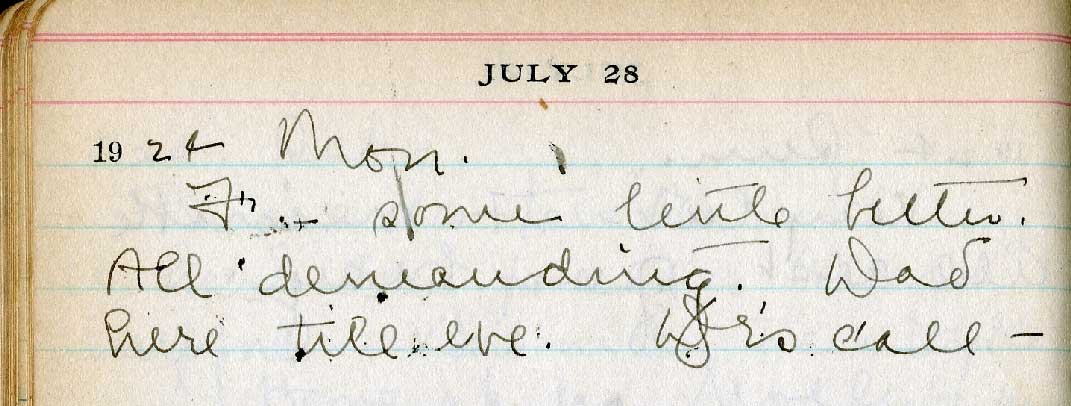 JULY 28
1924 Mon.
some little better.
All demanding.
here till eve. Dr's call –